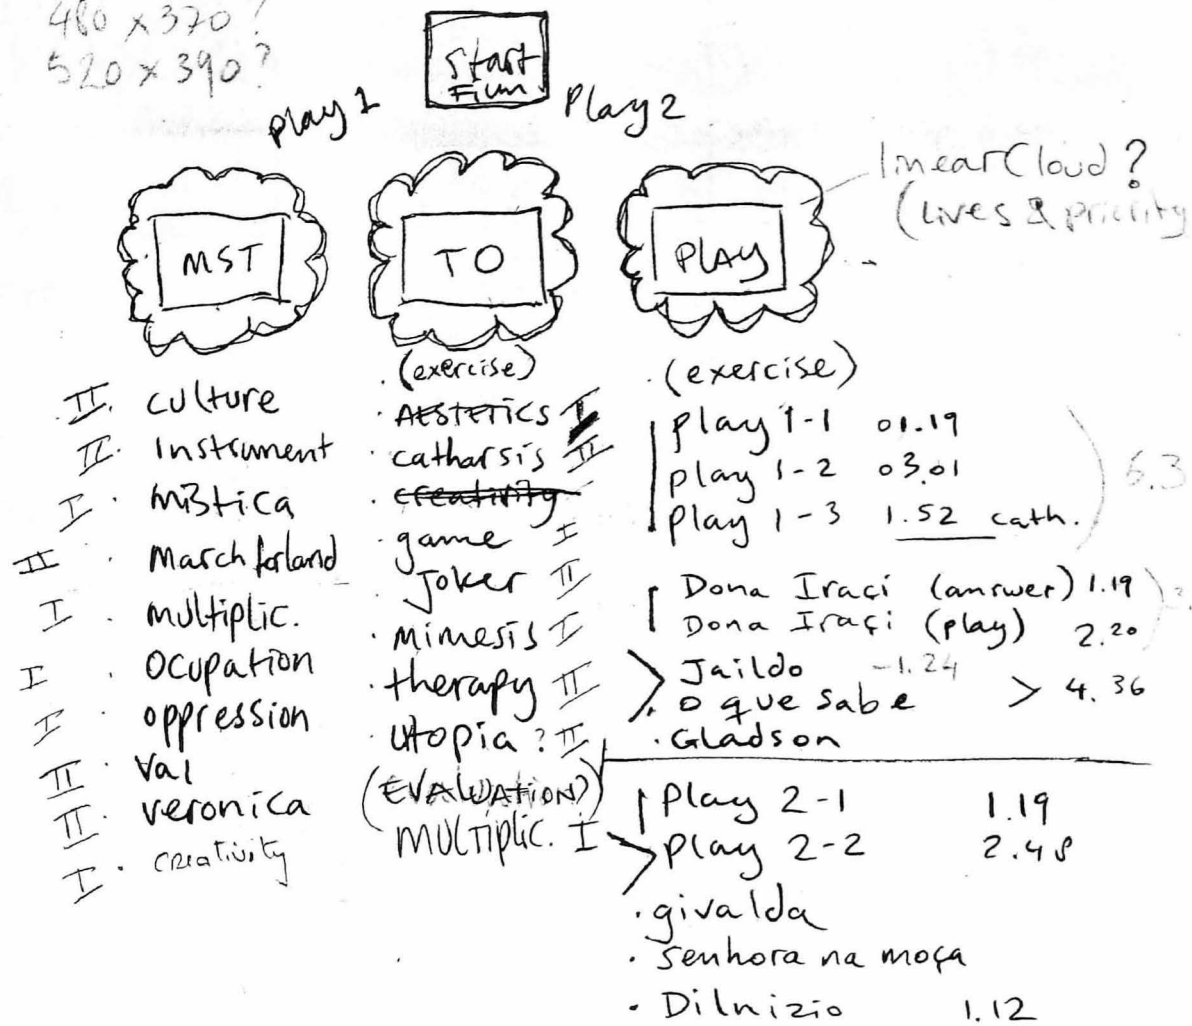 480 x 370?
520 x 390?
Start
Film
Play 1
Play 2
linearCloud?
(lives & priority
MST
TO
PLAY
II. culture
II. Instrument
I. mistica
II March for land
I. multiplic.
I ocupation
I oppression
II Val
II. veronica
I. creativity
. (exercise)
. AESTETICS I
. catharsis II
. creativity
. game I
. Joker II
. mimesis I
. therapy II
. utopia? II
(EVALUATION?)
MULTIPLIC. I
. (exercise)
play 1-1 01.19
play 1-2 03.01
Play 1-3 1.52 cath.
6.3
Dona Iraçi (answer) 1.19
Dona Iraçi (play) 2.20
Jaildo -1.24
. o que sabe > 4.36
. Gladson
Play 2-1 1.19
play 2-2 2.48
. givalda
. senhora na moça
. Dilnizio 1.12